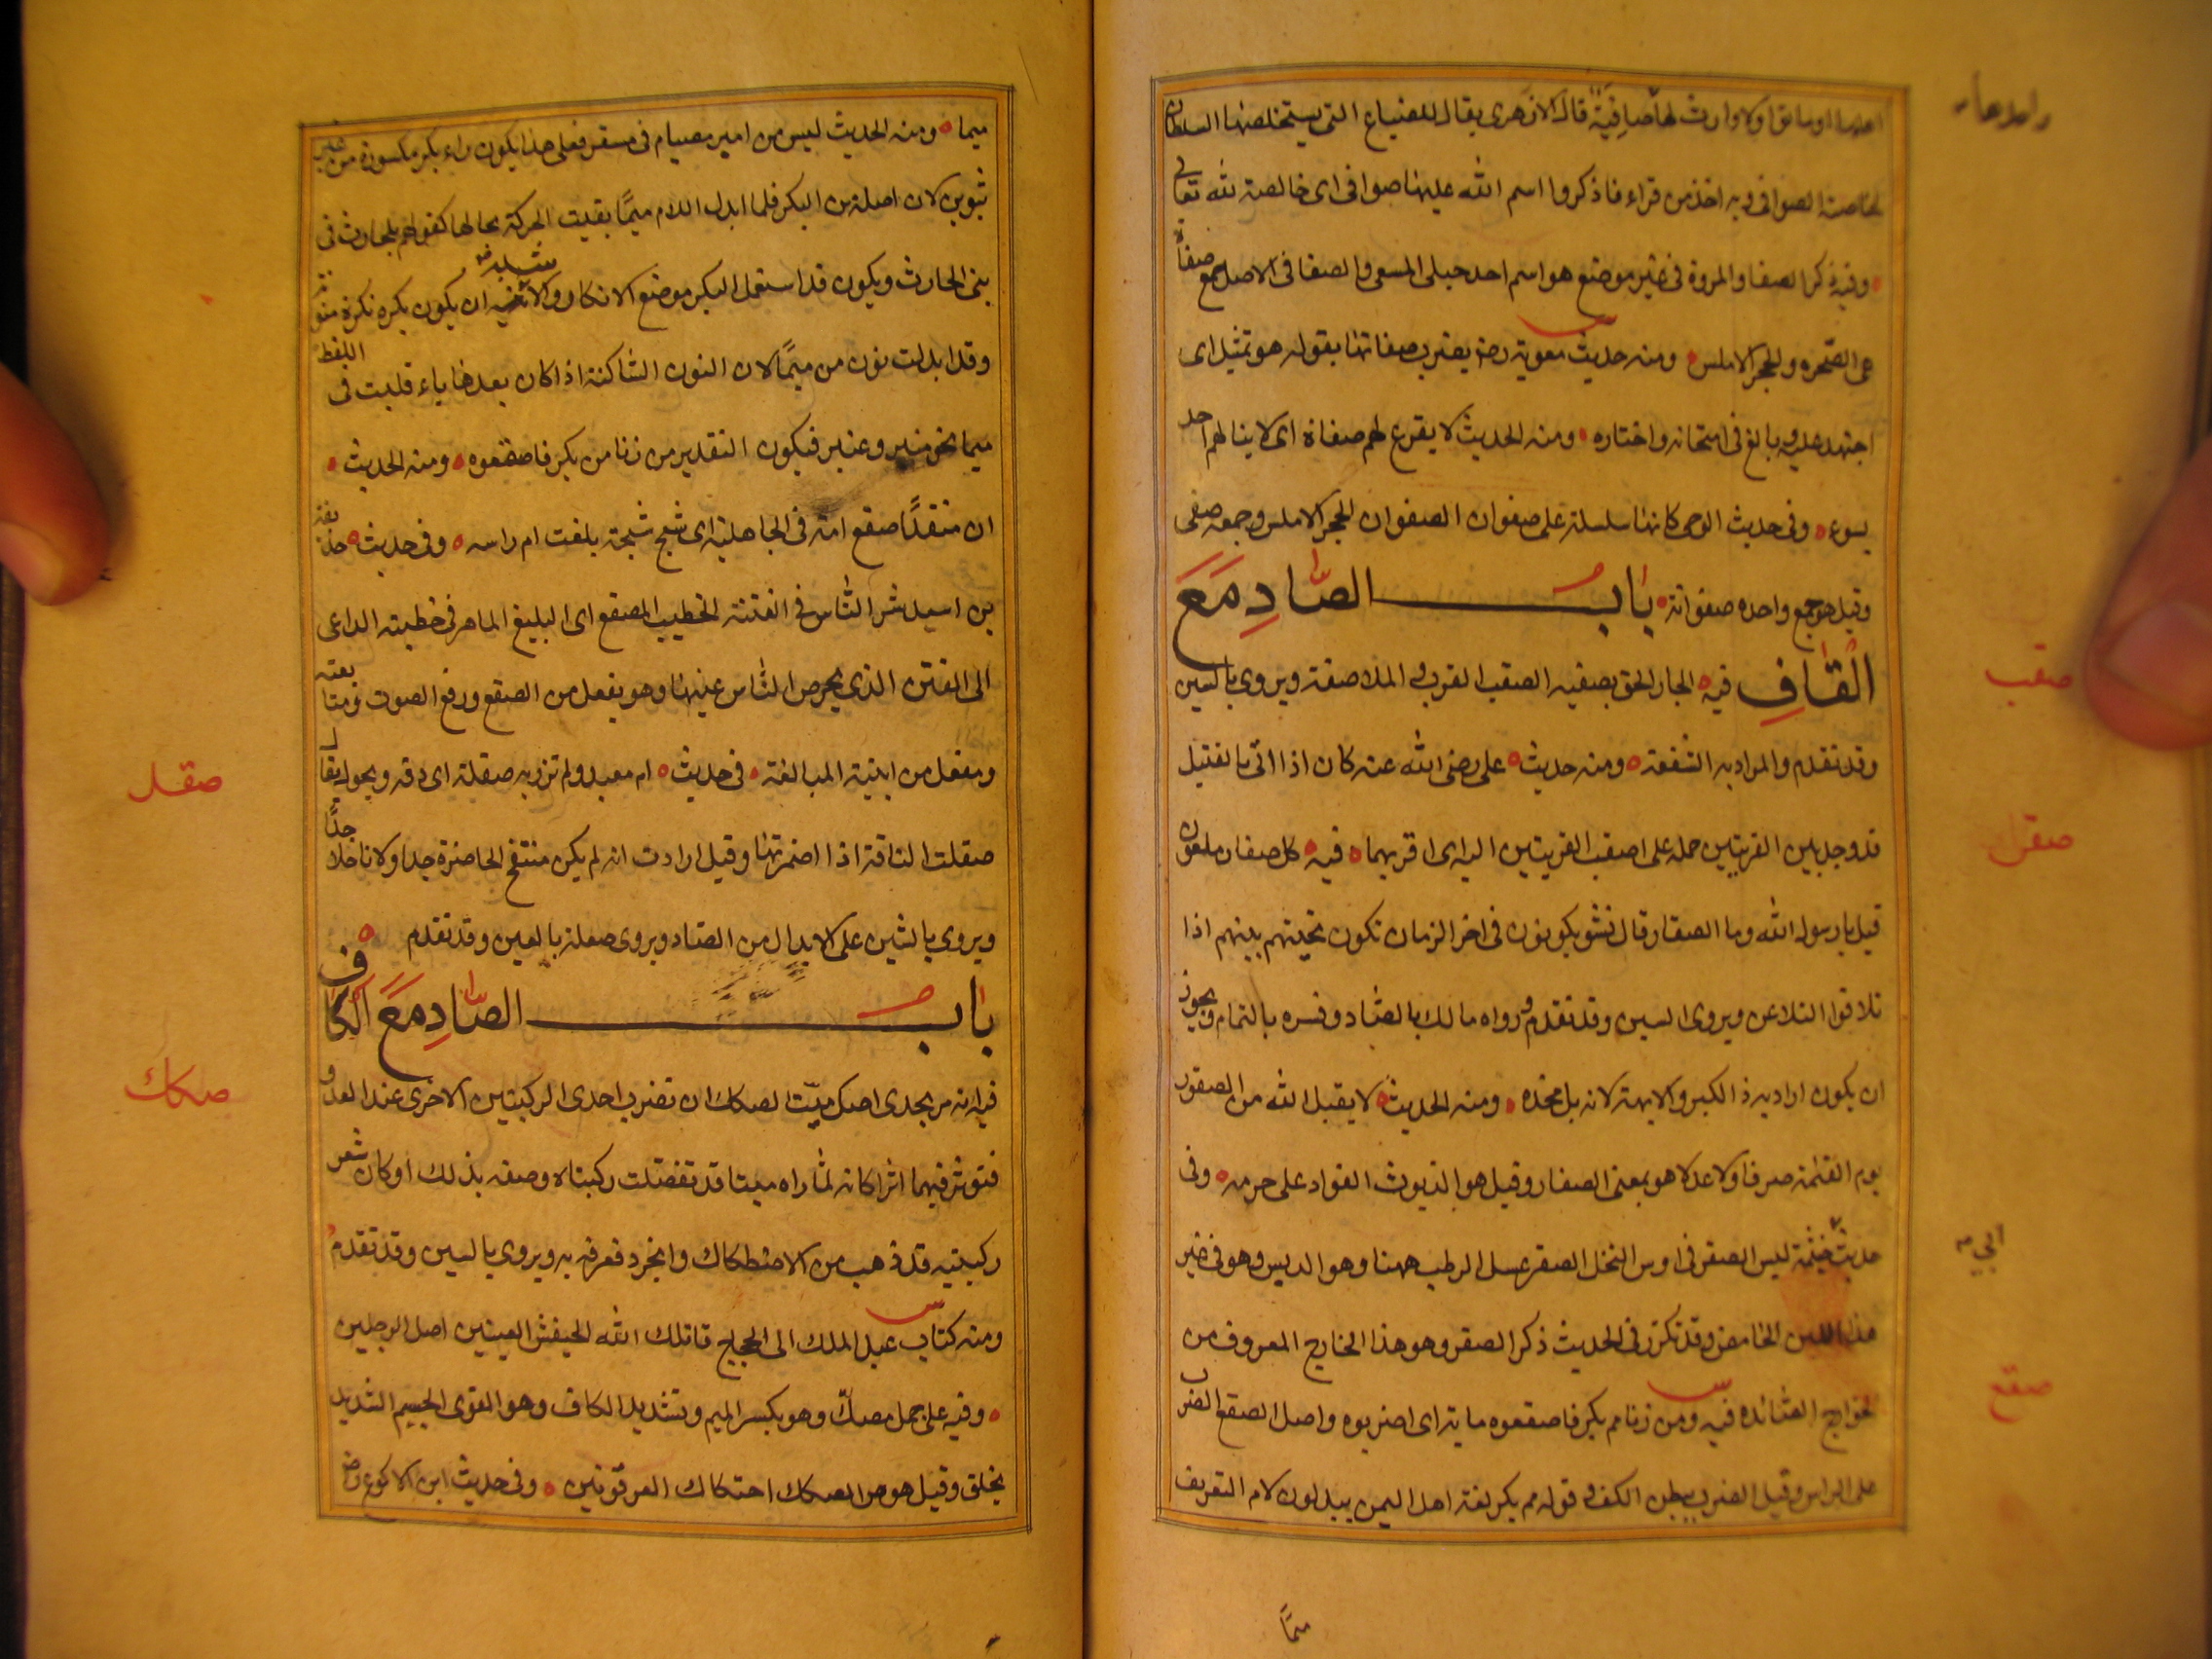 اهلها او ماتوا ولا وارث لها صافية قال الازهرى يقال للضياع التى يستخلصها السلطان
لخاصته الصوافى وبه اخذ من قراء فاذكروا اسم الله عليها صوافى اى خالصة لله تعالى
وفيه ذكر الصفا والمروة فى غير موضع هو اسم احد جبلى المسعى والصفا فى الاصل جمع صفاة
هى الصخره والحجر الاملس ومنه حديث معوية رضه يضرب صفاتها بقوله هو تمثيل اى
اجتهد عليه وبالغ فى امتحانه واختباره ومنه الحديث لا يقرع لهم صفاة اى لا ينالهم احد
بسوء وفى حديث الوحى كانها سلسلة على صفوان الصفوان الحجر الاملس وجمعه صفى
وقيل هو جمع واحده صفوانة باب الصاد مع
القاف فيه الجار احق بصقبه الصقب القرب والملاصقة ويروى بالسين
وقد تقدم والمراد به الشفعة ومنه حديث على رضى الله عنه كان اذا اتى بالقتيل
قد وجد بين القريتين حمله على اصقب القريتين اليه اى اقربهما فيه كل صقار ملعون
قيل يا رسول الله وما الصقار قال نشو يكونون فى اخر الزمان تكون تحيتهم بينهم اذا
تلاقوا التلاعن ويروى السين وقد تقدم ورواه مالك بالصاد وفسره بالنمام ويجوز
ان يكون اراد به ذا الكبر والابهة لانه يميل بخده ومنه الحديث لا يقبل الله من الصقور
يوم القيمة صرفا ولا عدلا هو بمعنى الصقار وقيل هو الديوث القواد على حرمه وفى
حديث خيثمة ليس الصقر فى اوس النخل الصقر عسل الرطب ههنا وهو الدبس وهو فى غير
هذا اللبن الحامض وقد تكرر فى الحديث ذكر الصقر وهو هذا الجارح المعروف من
الجوارح الصائده فيه ومن زنا مم بكر فاصقعوه ماية اى اضربوه واصل الصقع الضرب
على الراس وقيل الضرب ببطن الكف وقوله مم بكر لغة اهل اليمن يبدلون لام التعريف
صقب
صقر
ابي
صقع
ميما
ميما ومنه الحديث ليس من امبر مصيام فى مسفر فعلى هذا يكون راء بكر مكسورة من غير
تنوين لان اصله من البكر فلما ابدل اللام ميما بقيت الحركة بحالها كقولهم بلحارث فى
بنى الحارث ويكون قد استعمل البكر موضع الابكار والاشبه ان يكون بكره نكرة منونة
وقد ابدلت نون من ميما لان النون الساكنة اذا كان بعدها باء قلبت فى اللفظ
ميما نحو منبر وعنبر فيكون التقدير من زنا من بكر فاصقعوه ومنه الحديث
ان منقذا صقع امة فى الجاهلية اى شج شجة بلغت ام راسه وفى حديث حذيفة
بن اسيد شر الناس فى الفتنة الخطيب المصقع اى البليغ الماهر فى خطبته الداعى
الى الفتن الذى يحرض الناس عليها وهو مفعل من الصقع ورفع الصوت ومتابعته
ومفعل من ابنية المبالغة فى حديث ام معبد ولم تزر به صقلة اى دقة ونحول يقال
صقلت الناقة اذا اضمرتها وقيل ارادت انه لم يكن منتفخ الخاصرة جدا ولا ناحلا جدا
ويروى بالسين على الابدال من الصاد ويروى صعلة بالعين وقد تقدم
باب الصاد مع الكاف
فيه انه مر بجدى اصك ميت الصكك ان تضرب احدى الركبتين الاخرى عند العدو
فتوثر فيهما اثرا كانه لما راه ميتا قد تقفلت ركبتاه وصفه بذلك او كان شعر
ركبتيه قد ذهب من الاصطكاك وانجرد فعرفه به ويروى بالسين وقد تقدم
ومنه كتاب عبد الملك الى الحجاج قاتلك الله اخيفش العينين اصك الرجلين
وفيه على جمل مصك وهو بكسر الميم وتشديد الكاف وهو القوى الجسيم الشديد
الخلق وقيل هو من الصكك احتكاك العرقوبين وفى حديث ابن الاكوع رضه
صقل
صكك